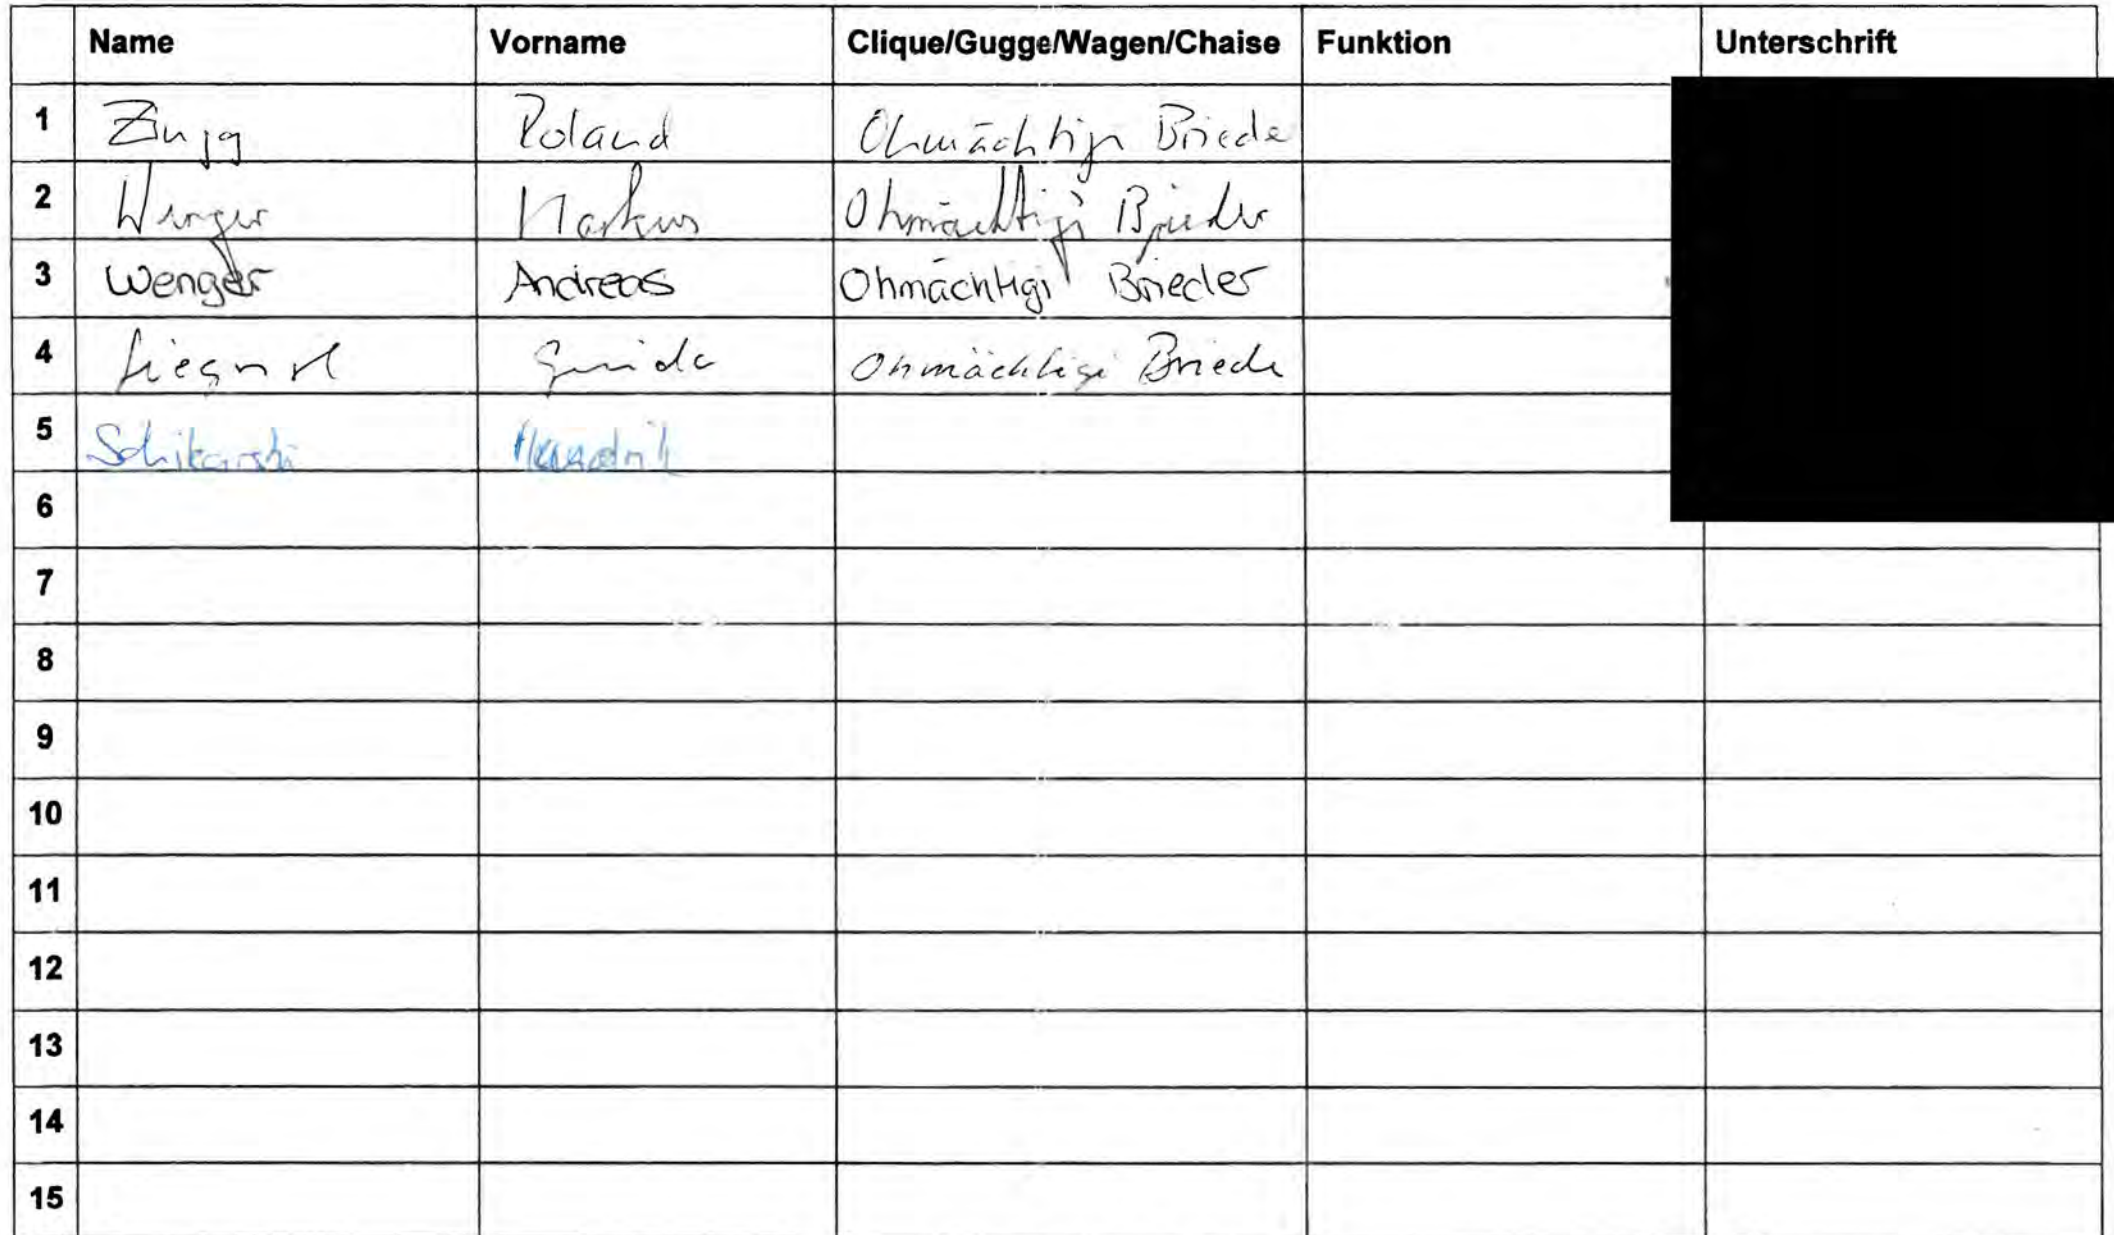 Name Vorname Clique/Gugge/Wagen/Chaise Funktion Unterschrift
1 Zingg Roland Ohmächtigi Briede
2 Wenger Markus Ohmächtigi Brieder
3 Wenger Andreas Ohmächtigi Brieder
4 Ohmächtigi Briede
5 Schikarski
6
7
8
9
10
11
12
13
14
15